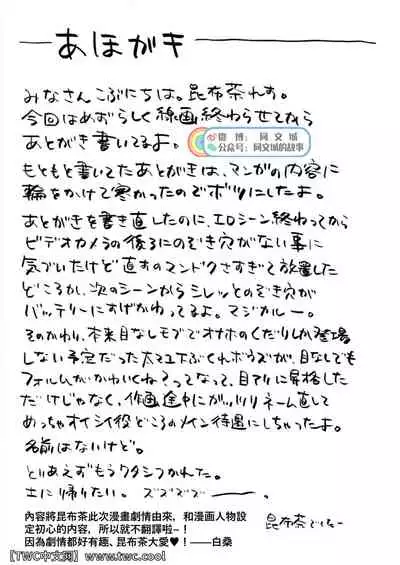 あほがき
みなさんこぶにちは。昆布茶れす。
今回はめずらしく線画終わらせてから
あとがき書いてるよ。
微博: 同文城
公众号:同文城的故事
もともと書いてたあとがきは、マンガの内容に
輪をかけて寒かったのでボツにしたよ。
あとがきを書き直したのに、エロシーン終わってから
ビデオカメラの後ろにのぞき穴がない事に
気づいたけど直すのマンドクさすぎて放置した
どころか、次のシーンからシレッとのぞき穴が
バッテリーにすげかわってるよ。マジカルー。
そのかわり、本来目なしモブでオナホのくだりしか登場
しない予定だった太マユ下ぶくれボウズが、目なしでも
フォルムがかわいくね?ってなって、目アリに昇格した
だけじゃなく、作画途中にガッツリネーム直して
めっちゃオイシイ役どころのメイン待遇にしちゃったよ。
名前はないけど。
とりあえずもうワタシつかれた。
土に帰りたい。ズズズズ――。
內容將昆布茶此次漫畫劇情由來,和漫画人物設
定初心的內容,所以就不翻譯啦~!
因為劇情都好有趣、昆布茶大愛♥!——白桑
昆布茶でしたー
【TWC中文网】www.twc.cool